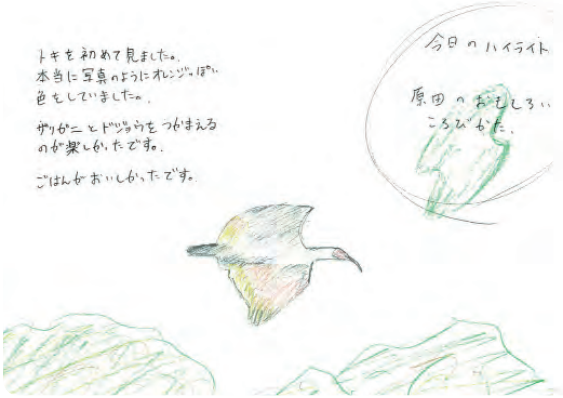 トキを初めて見ました。
本当に写真のようにオレンジっぽい
色をしていました。
ザリガニとドジョウをつかまえる
のが楽しかったです。
ごはんがおいしかったです。
今日のハイライト
原田のおもしろい
ころびかた.